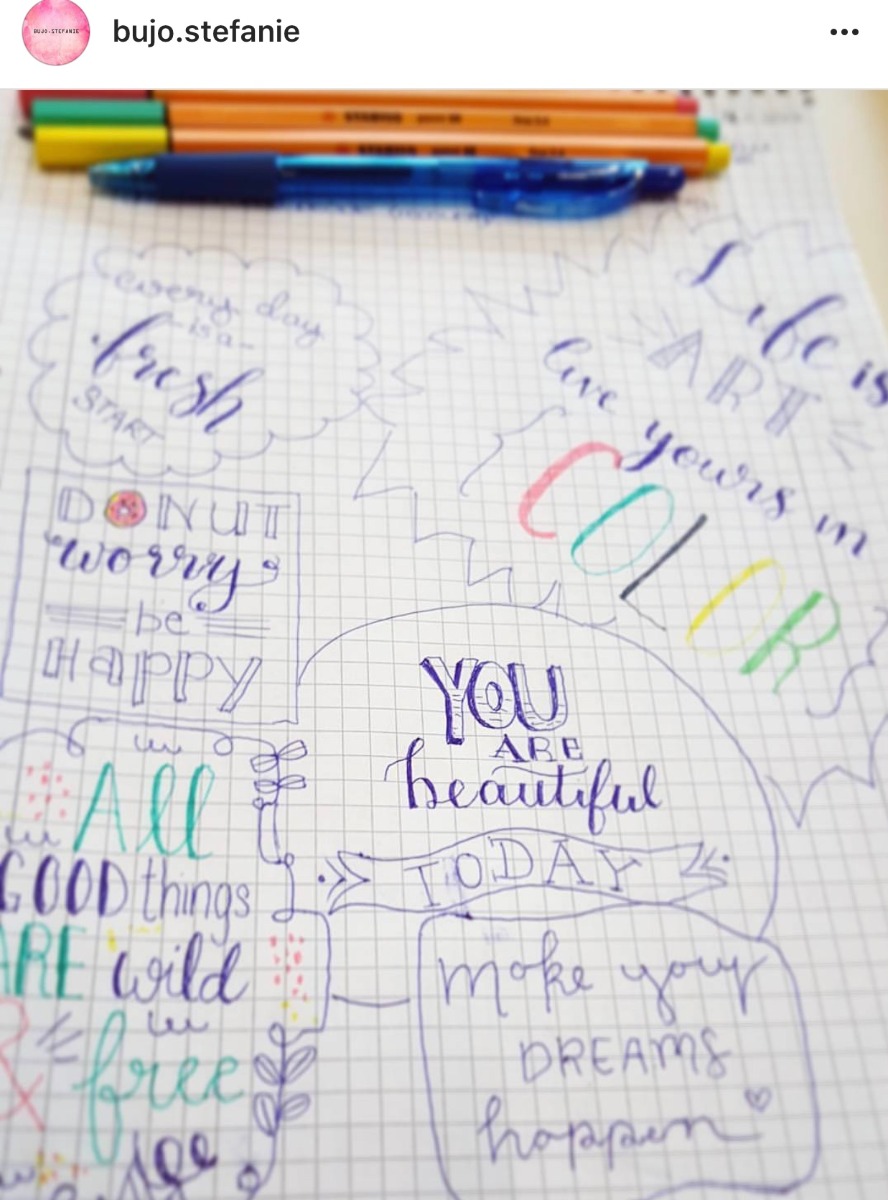 bujo.stefanie
BUJO.STEFANIE
every day
is a
fresh
START
Life is
ART
live
yours in
COLOR
DONUT
worry
be
HAPPY
YOU
ARE
beautiful
TODAY
All
GOOD things
ARE wild
& free
make your
DREAMS
happen